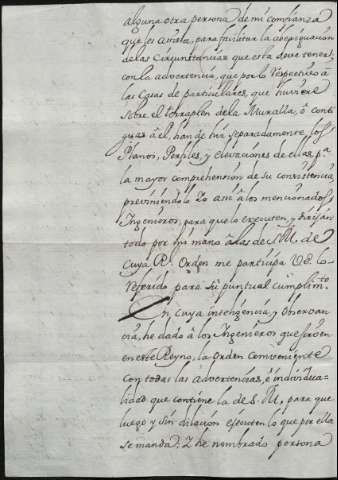 alguna otra persona de mi confianza
que les asista, para facilitar la averiguacion
de las Circunstancias que esta deve tener:
con la advertencia, que por lo respectivo à
las Casas de particulares, que huviere
sobre el therraplen de la Muralla, ò conti
guas à èl, han de venir separadamente los
Planos, Perfiles, y elevaciones de ellas pa.
la mayor comprehension de su consistencia
previniendolo Vo asi à los mencionados
Ingenieros, para que lo executen, y dirijan
todo por mi mano à las de S. M. de
Cuya Rl. Orden me participa Vd. lo
referido para su puntual cumplimto.
En cuya inteligencia, y observan
cia, he dado à los Ingenieros que sirven
en este Reyno, la orden conveniente
con todas las advertencias, è individua
lidad que contiene la de S. M, para que
luego y sin dilacion executen lo que por ella
se manda: Y he nombrado persona